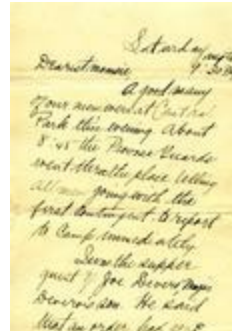 Saturday
9.30
Dearest mamie,
A good many
of our men were at Central
Park this evening. About
8.45 the Provose Guards
went thru the place telling
all men going with the
first contingent to report
to Camp immediately.
I was the supper
guest of Joe Devers
son. He said
that an order had